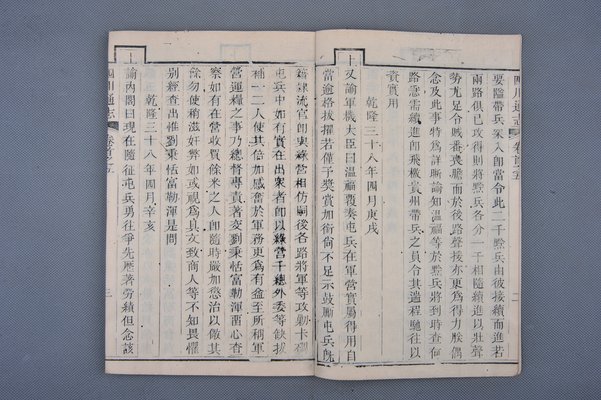 四川通志
二
要隘帶兵來入卽當令此二千黔兵由彼接續而進若
兩路俱已攻得則將黔兵各分一千相隨續進以壯聲
勢尤足令賊番喪膽而於後路聲接亦更爲得力朕偶
念及此事特爲詳晰諭知温福等於黔兵將到時查何
路急需續進卽飛檄貴州帶兵之員令其遄程馳往以
資實用
乾隆三十八年四月庚戌
上又諭軍機大臣曰温福覆奏屯兵在軍營實屬得用自
當逾格拔擢若僅予獎賞加銜尚不足示鼓勵屯兵旣
隸流官卽與綠營相仿嗣後各路將軍等攻勦卡碉
屯兵中如有實在出衆者卽以綠營千總外委等缺拔
補一二人使其倍加感奮於軍務更爲有益至所稱軍
營運糧之事乃總督專責著交劉秉恬富勒渾留心查
察如有在營收買餘米之人卽隨時嚴加懲治以儆其
餘勿使稍滋奸弊如或視爲具文致商人等不知畏懼
別經查出惟劉秉恬富勒渾是問
乾隆三十八年四月辛亥
上諭內閣曰現在隨征屯兵勇往爭先歷著勞績但念該
四川通志
三